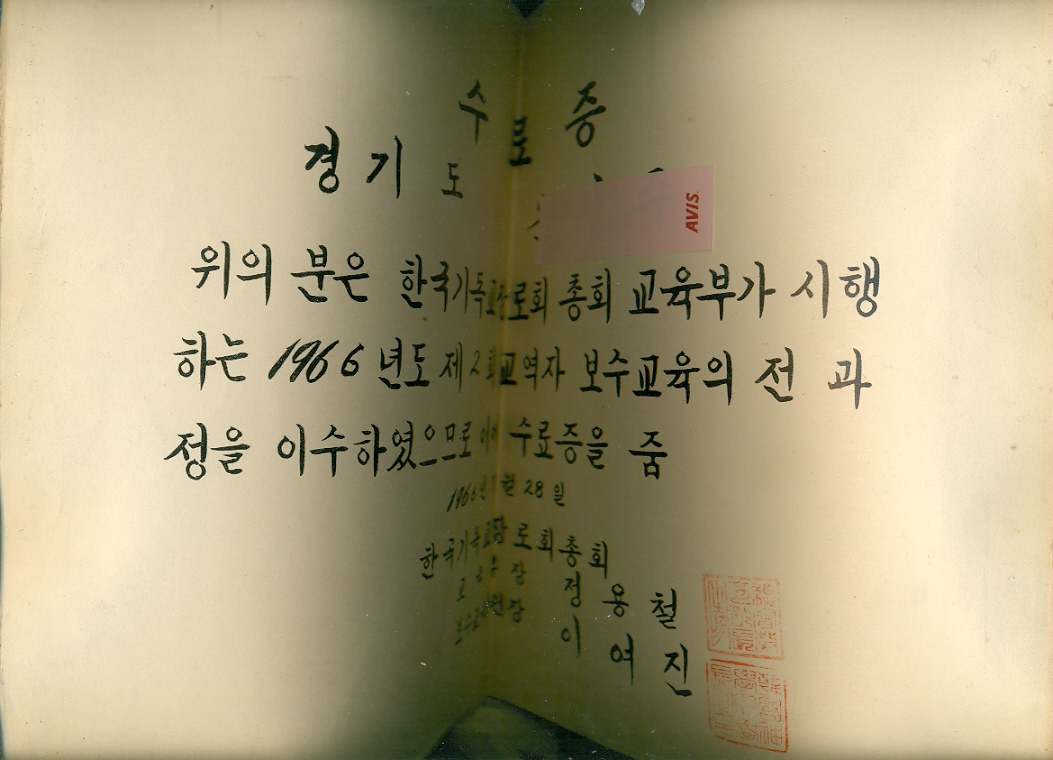 수료증
경기도
AVIS
위의 분은 한국기독교장로회 총회 교육부가 시행
하는 1966년도 제2회 교역자 보수교육의 전 과
정을 이수하였으므로 이에 수료증을 줌
1966년 월 28일
한국기독교장로회총회
장 정용철
보수교육원장 이여진